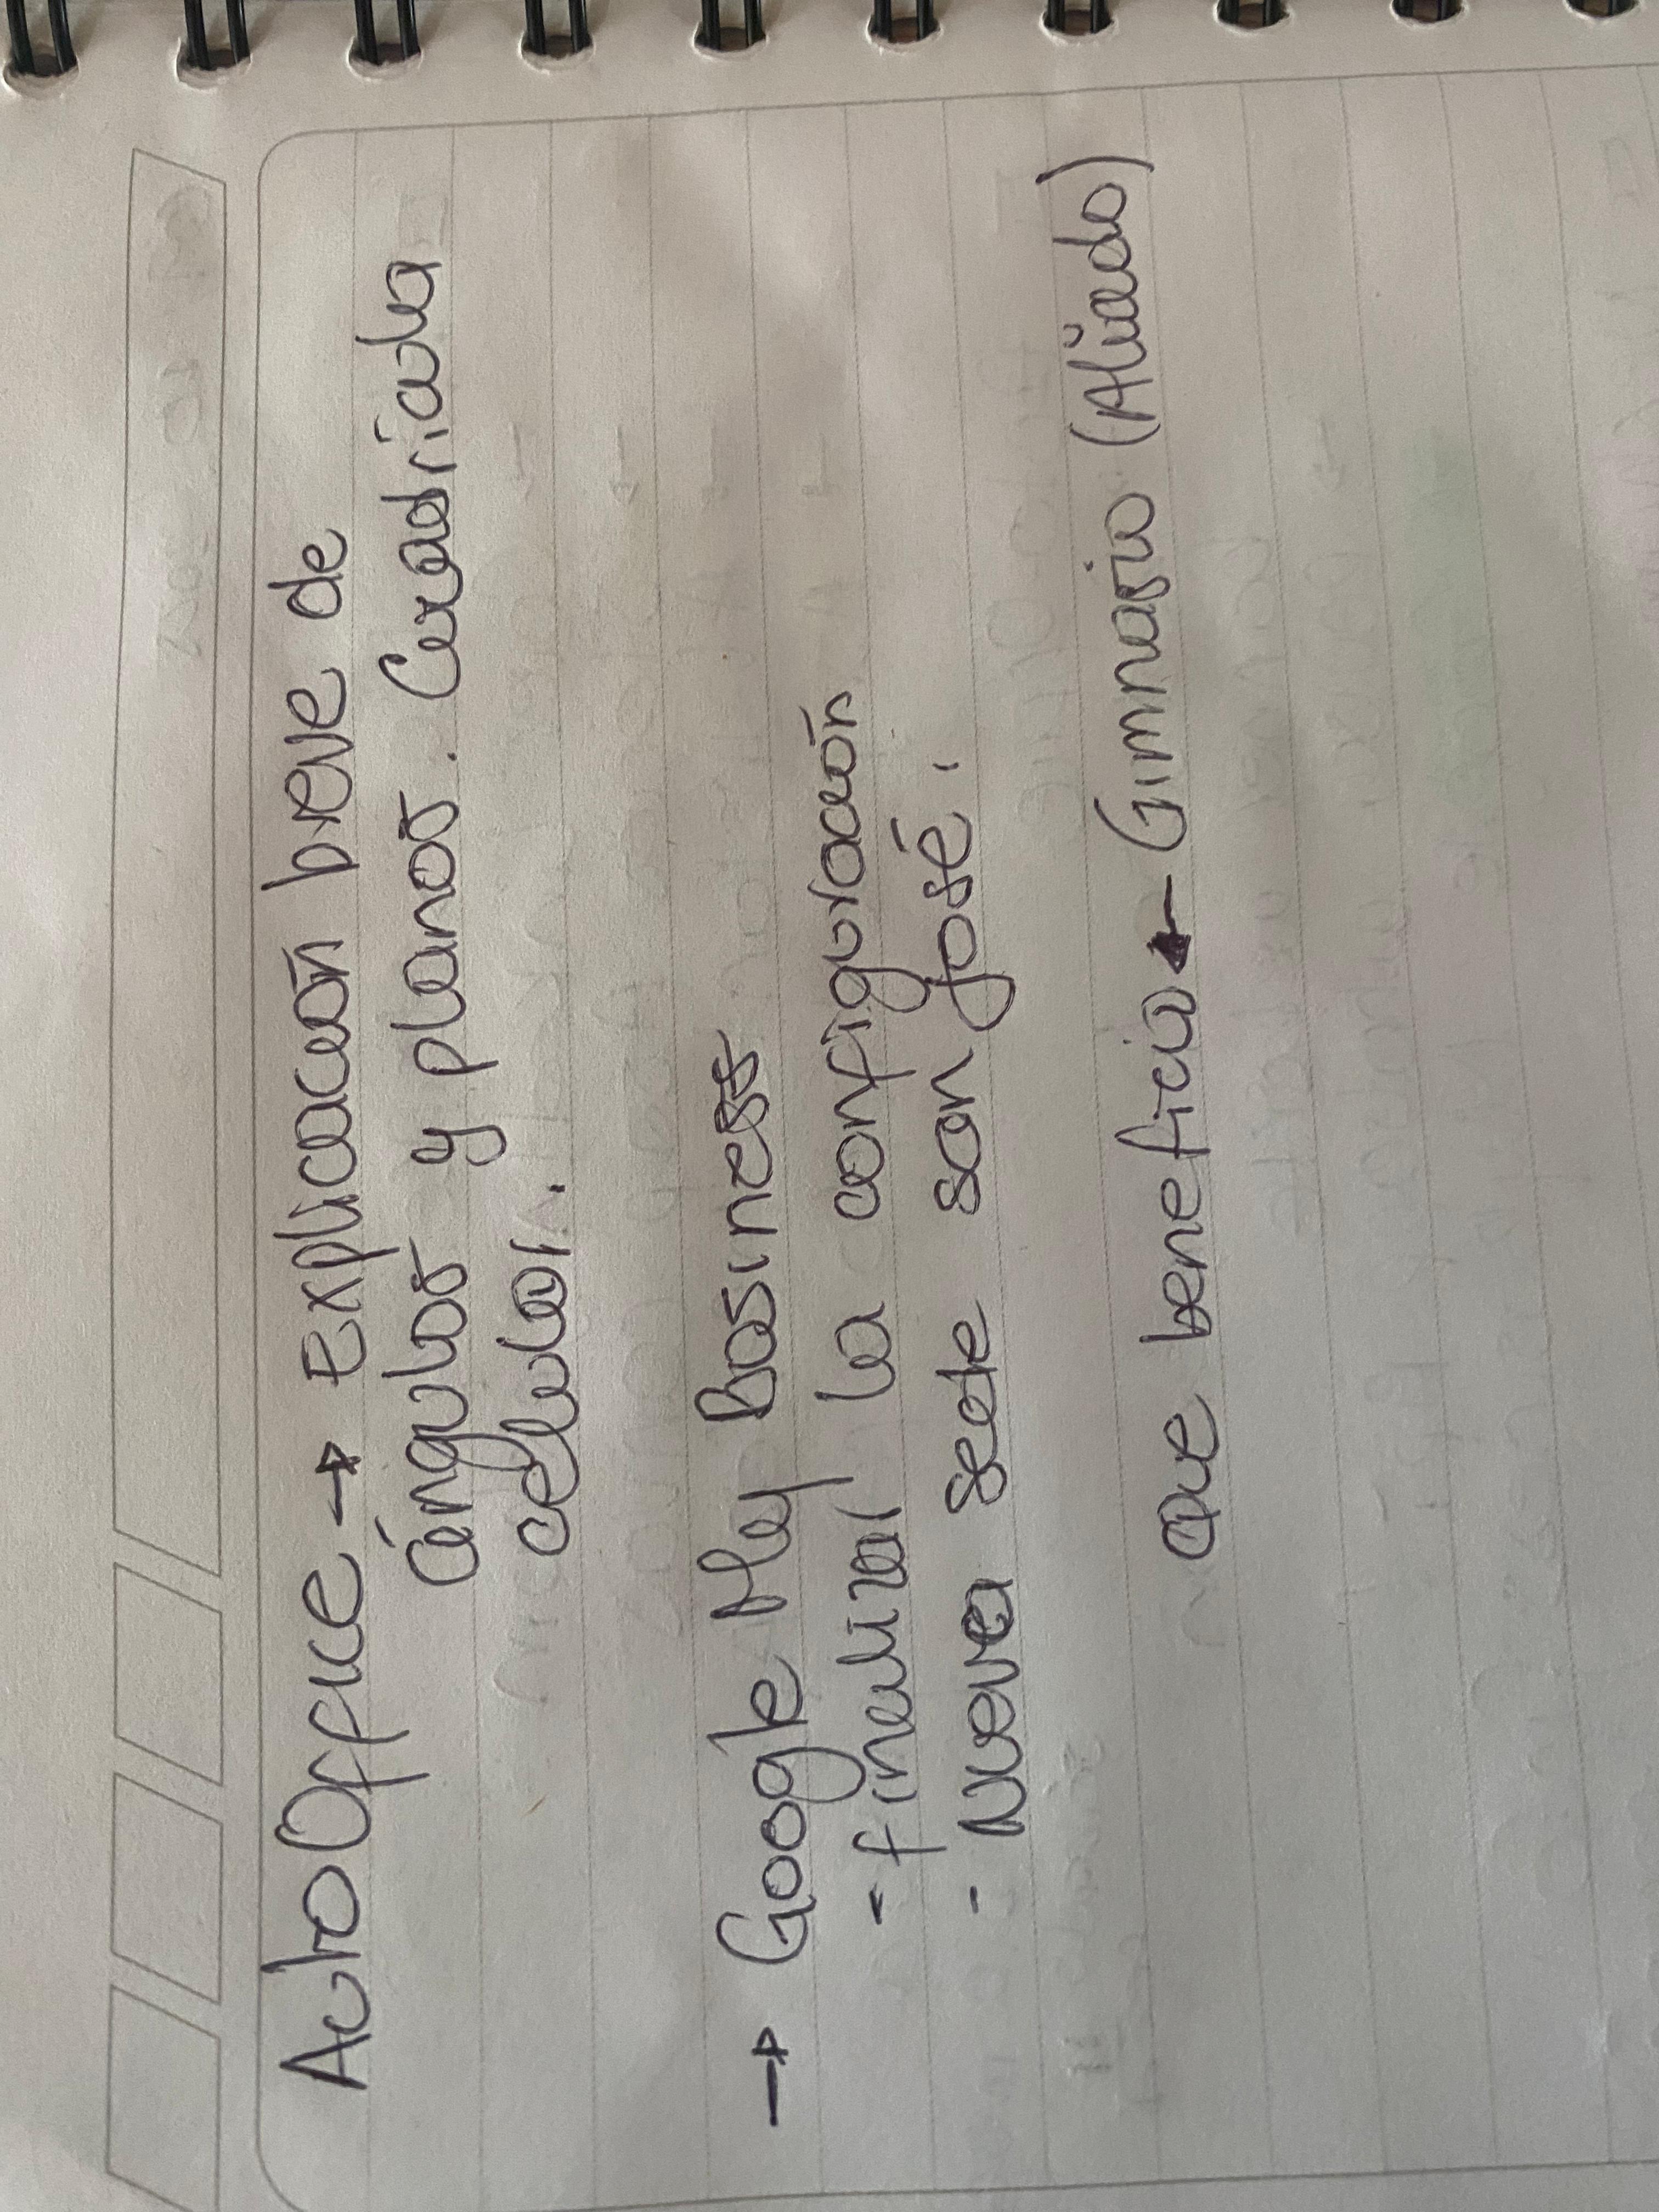 AutoOffice → Explicación breve de
ángulos y planos. Cuadrícula
celular.
→ Google My Business
- finalizar la configuración
- Nueva sede san josé.
que beneficio ← Gimnasio (Aliado)